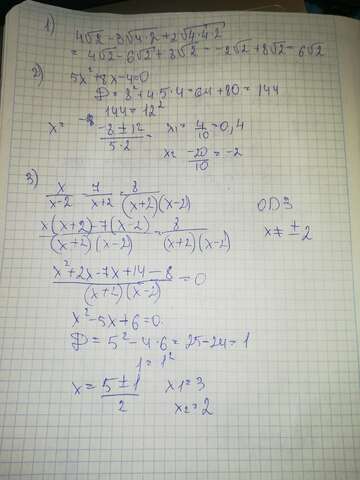 1) 4√2 - 3√4·2 + 2√4·4·2
= 4√2 - 6√2 + 8√2 = -2√2 + 8√2 = 6√2
2) 5x²+8x-4=0
D = 8²+4·5·4=64+80=144
144=12²
x= -8±12/5·2 = x₁=4/10=0,4
x₂ -20/10=-2
3) x/x-2 - 7/x+2 = 8/(x+2)(x-2)
ОДЗ
x(x+2)-7(x-2)/(x+2)(x-2) = 8/(x+2)(x-2)
x≠±2
x²+2x-7x+14-8/(x+2)(x-2)=0
x²-5x+6=0.
D=5²-4·6=25-24=1
1=1²
x=5±1/2 x₁=3
x₂=2